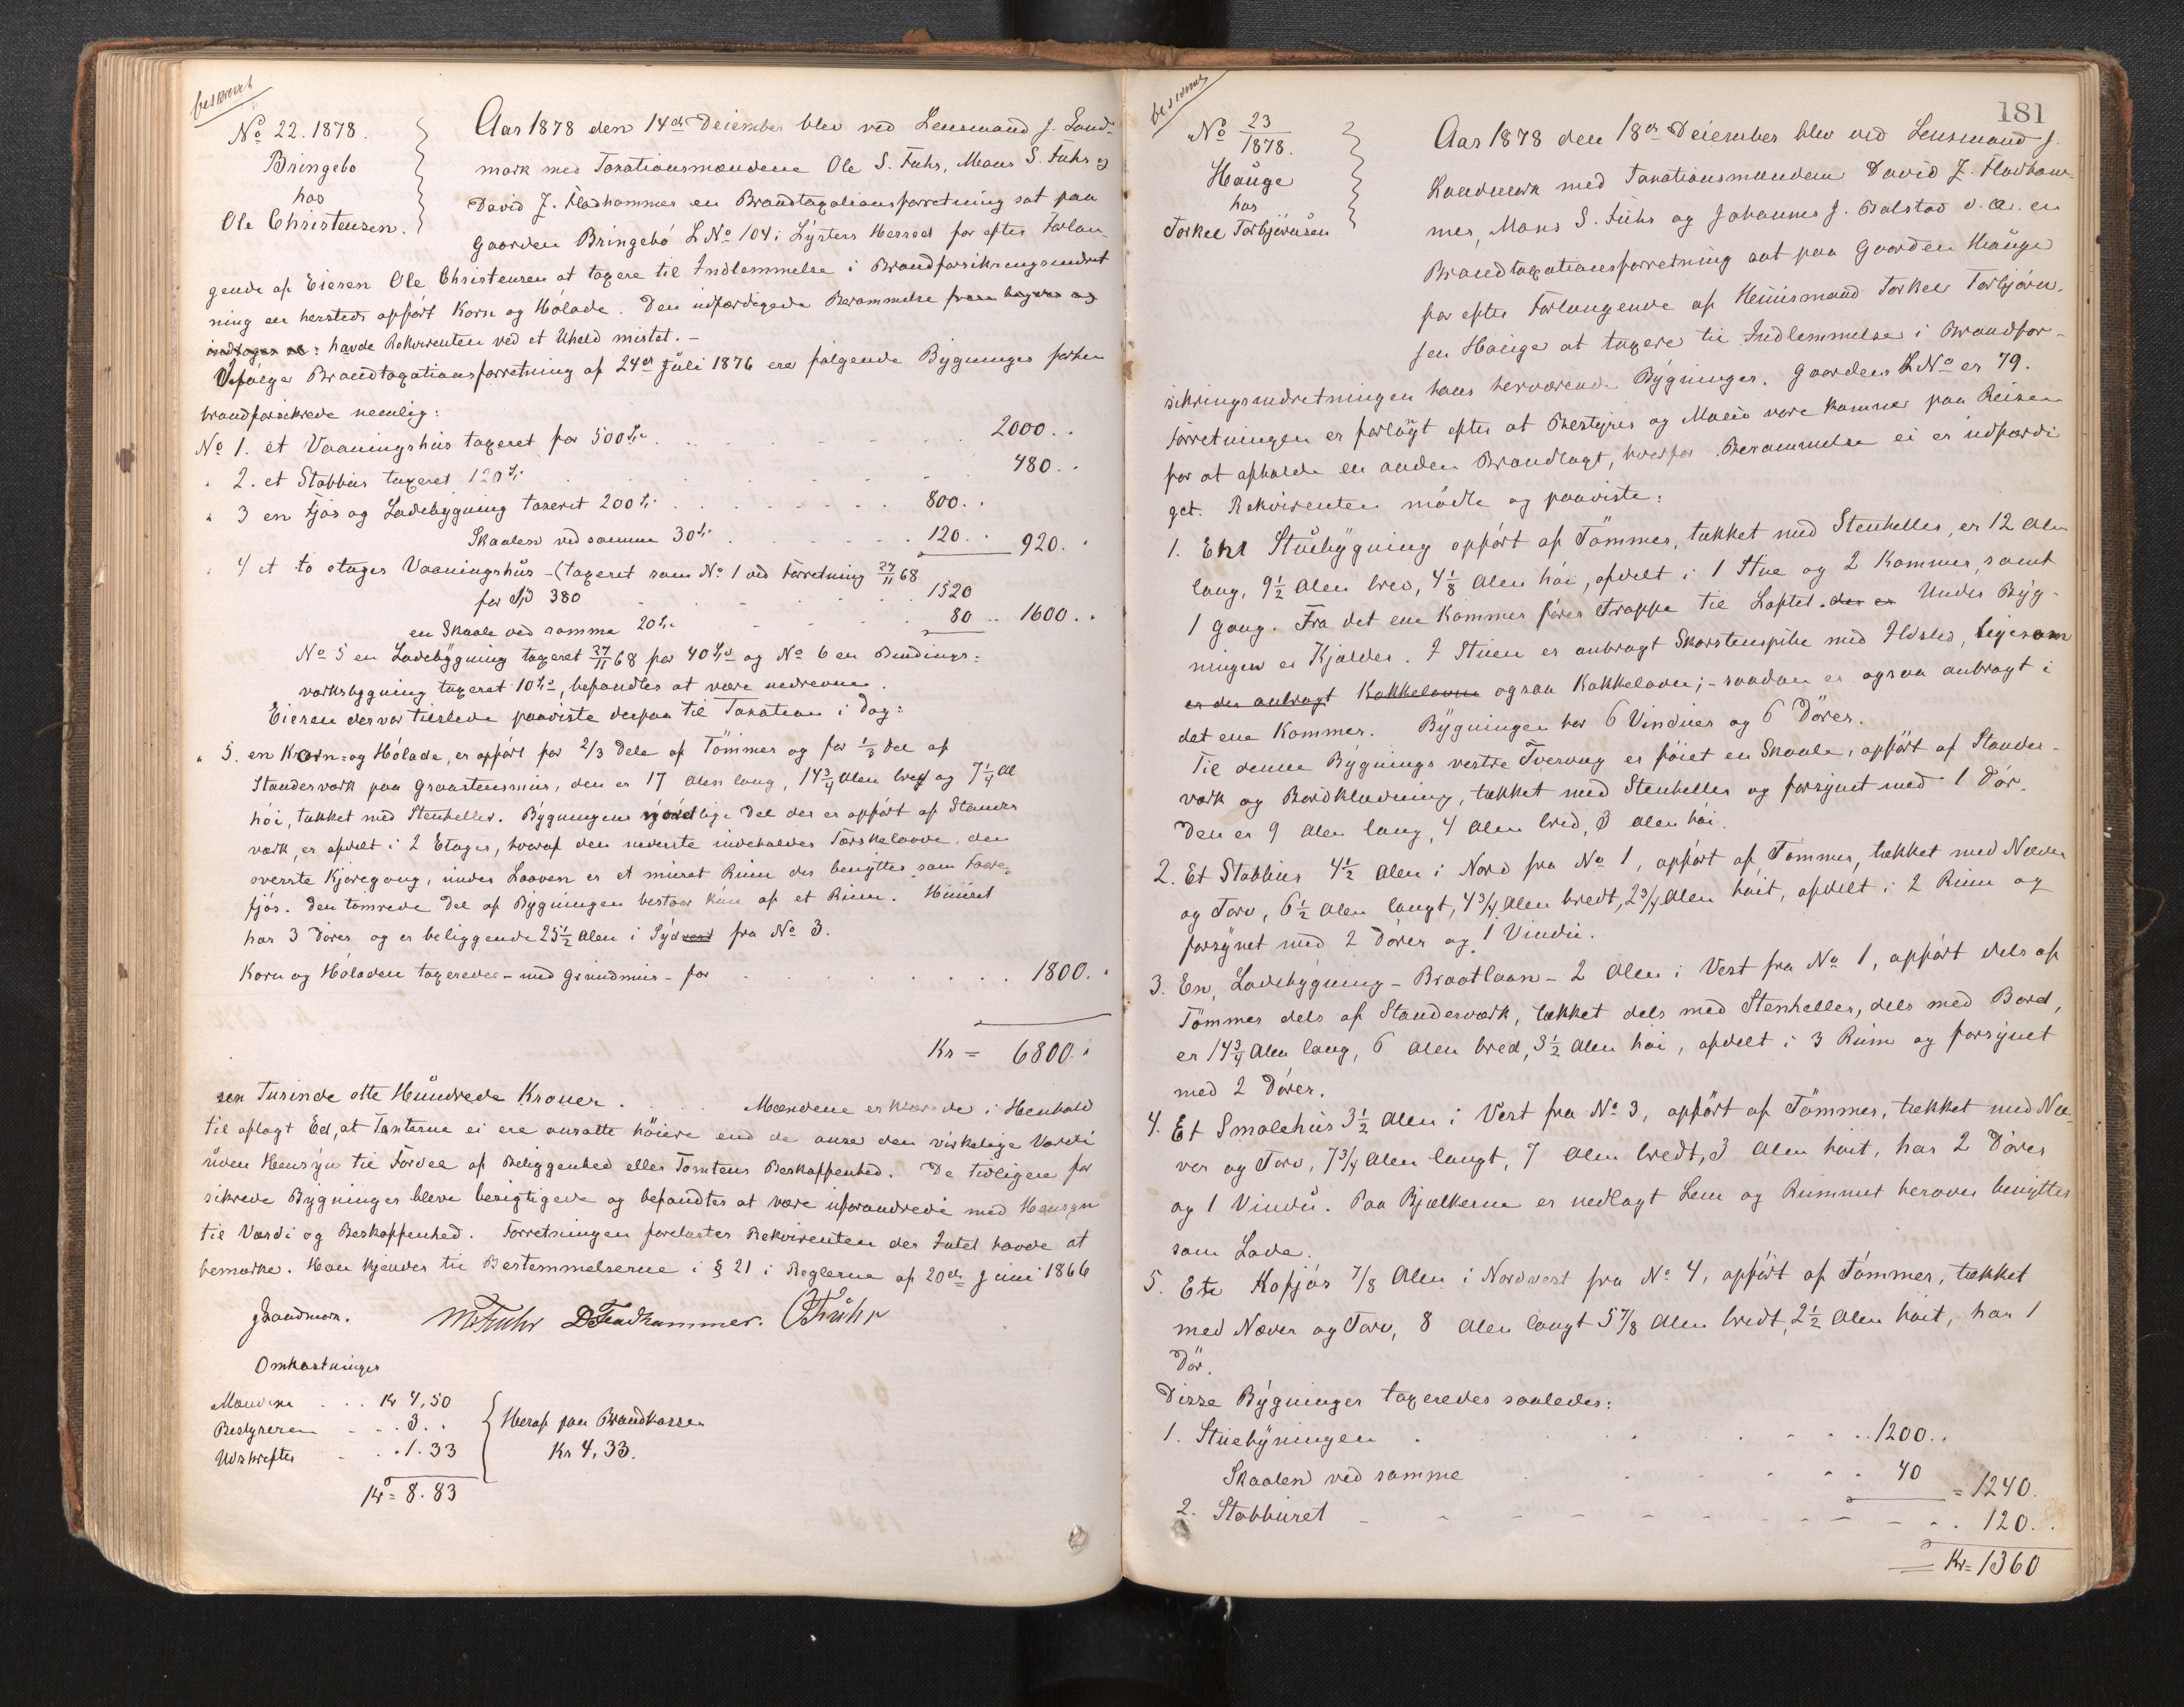 beskrevet
No 22. 1878.
Bringebø
hos
Ole Christensen.
Aar 1878 den 14de Deiember blev ved Lensmand J. Land-
mark med Taxationsmændene Ole S. Fuhr, Mons S. Fuhr og
David J. Fladhammer en Brandtaxationsforretning sat paa
Gaarden Bringebø L No 104 i Lysters Herred for efter Forlan-
gende af Eieren Ole Christensen at taxere til Indlemmelse i Brandforsikringsindret
ning en hersteds opført Korn og Hølade. Den udfærdigede Berammelse
havde Rekvirenten ved et Uheld mistet. -
Ifølge Brandtaxationsforretning af 24de Juli 1876 ere følgende Bygninger forhen
brandforsikrede nemlig:
No 1. et Vaaningshus taxeret for 500 Sp. 2000..
" 2. et Stabbur taxeret 120 Sp. 480..
" 3 en Fjøs og Ladebygning taxeret 200 Sp. 800..
Skaalen ved samme 30 Sp. 120.. 920..
" 4 et to etages Vaaningshus - (taxeret som No 1 ved Forretning 27/11 68
for Spd 380 1520
en Skaale ved samme 20 Sp. 80.. 1600..
No 5 en Ladebygning taxeret 27/11 68 for 40 Spd og No 6 en Bindings:
værksbygning taxeret 10 Spd, befandtes at være nedrevne.
Eieren der var tilstede paaviste derpaa til Taxation i Dag:
" 5. en Korn= og Hølade, er opført for 2/3 Dele af Tømmer og for 1/3 Del af
Standerværk paa Graastensmur, den er 17 Alen lang, 14 3/4 Alen bred og 7 1/4 Al
høi, tækket med Stenheller. Bygningens sydlige Del der er opført af Stander
værk, er afdelt i 2 Etager, hvoraf den nederste indeholder Tærskelaave, den
øverste Kjøregang, under Laaven er et muret Rum der benyttes som Faare-
fjøs. Den tømrede Del af Bygningen bestaar kun af et Rum. Huuset
har 3 Døre og er beliggende 25 1/2 Alen i Syd vest fra No 3.
Korn og Høladen taxeredes - med Grundmur - for 1800..
Kr = 6800..
sex Tusinde otte Hundrede Kroner. Mændene erklærede i Henhold
til aflagt Ed, at Taxterne ei ere ansatte høiere end de anse den virkelige Værdi
uden Hensyn til Fordel af Beliggenhed eller Tomtens Beskaffenhed. De tidligere for
sikrede Bygninger bleve besigtigede og befandtes at være uforandrede med Hensyn
til Værdi og Beskaffenhed. Forretningen forelæstes Rekvirenten der Intet havde at
bemærke. Han kjender til Bestemmelserne i § 21 i Reglerne af 20de Juni 1866
J Landmark. MSFuhr DFladhammer. OSFuhr
Omkostninger
Mændene ... Kr 4,50
Bestyreren ... 3..
Udskrifter ... 1.33
Kr = 8.83
Heraf paa Brandkassen
Kr 4,33.
181
beskrevet
No 23/1878.
Hauge
hos
Torkel Torbjørnsen
Aar 1878 den 18de Deiember blev ved Lensmand J.
Landmark med Taxationsmændene David J. Fladham-
mer, Mons S. Fuhr og Johannes J. Bolstad d. Æ. en
Brandtaxationsforretning sat paa Gaarden Hauge
for efter Forlangende af Huusmand Torkel Torbjørn-
sen Hauge at taxere til Indlemmelse i Brandfor-
sikringsindretningen hans herværende Bygninger. Gaardens L No er 79.
Forretningen er foretagt efter at Bestyrer og Mænd vare komne paa Reisen
for at afholde en anden Brandtaxt, hvorfor Berammelse ei er udfærdi
get. Rekvirenten mødte og paaviste:
1. En Stuebygning opført af Tømmer, tækket med Stenheller, er 12 Alen
lang, 9 1/2 Alen bred, 4 1/8 Alen høi, afdelt i 1 Stue og 2 Kammer, samt
1 Gang. Fra det ene Kammer fører Trappe til Loftet. der er Under Byg-
ningen er Kjælder. I Stuen er anbragt Skorstenspibe med Ildsted, ligesom
er der anbragt Kakkelovne ogsaa Kakkelovn; - saadan er ogsaa anbragt i
det ene Kammer. Bygningen har 6 Vinduer og 6 Døre.
Til denne Bygnings vestre Tvervæg er føiet en Skaale, opført af Stander-
værk og Bordklædning, tækket med Stenheller og forsynet med 1 Dør.
Den er 9 Alen lang, 4 Alen bred, 3 Alen høi.
2. Et Stabbur 4 1/2 Alen i Nord fra No 1, opført af Tømmer, tækket med Næver
og Torv, 6 1/2 Alen langt, 4 3/4 Alen bredt, 2 3/4 Alen høit, afdelt i 2 Rum og
forsynet med 2 Døre og 1 Vindu.
3. En Ladebygning - Braatlaan - 2 Alen i Vest fra No 1, opført dels af
Tømmer dels af Standerværk, tækket dels med Stenheller, dels med Bord,
er 14 3/4 Alen lang, 6 Alen bred, 3 1/2 Alen høi, afdelt i 3 Rum og forsynet
med 2 Døre.
4. Et Smalehus 3 1/2 Alen i Vest fra No 3, opført af Tømmer, tækket med Næ-
ver og Torv, 7 3/4 Alen langt, 7 Alen bredt, 3 Alen høit, har 2 Døre
og 1 Vindu. Paa Bjælkerne er nedlagt Lem og Rummet herover benyttes
som Lade.
5. Et Kofjøs 7/8 Alen i Nordvest fra No 4, opført af Tømmer, tækket
med Næver og Torv, 8 Alen langt 5 7/8 Alen bredt, 2 1/2 Alen høit, har 1
Dør.
Disse Bygninger taxeredes saaledes:
1. Stuebyningen 1200..
Skaalen ved samme 40 = 1240.
2. Stabburet 120..
Kr = 1360